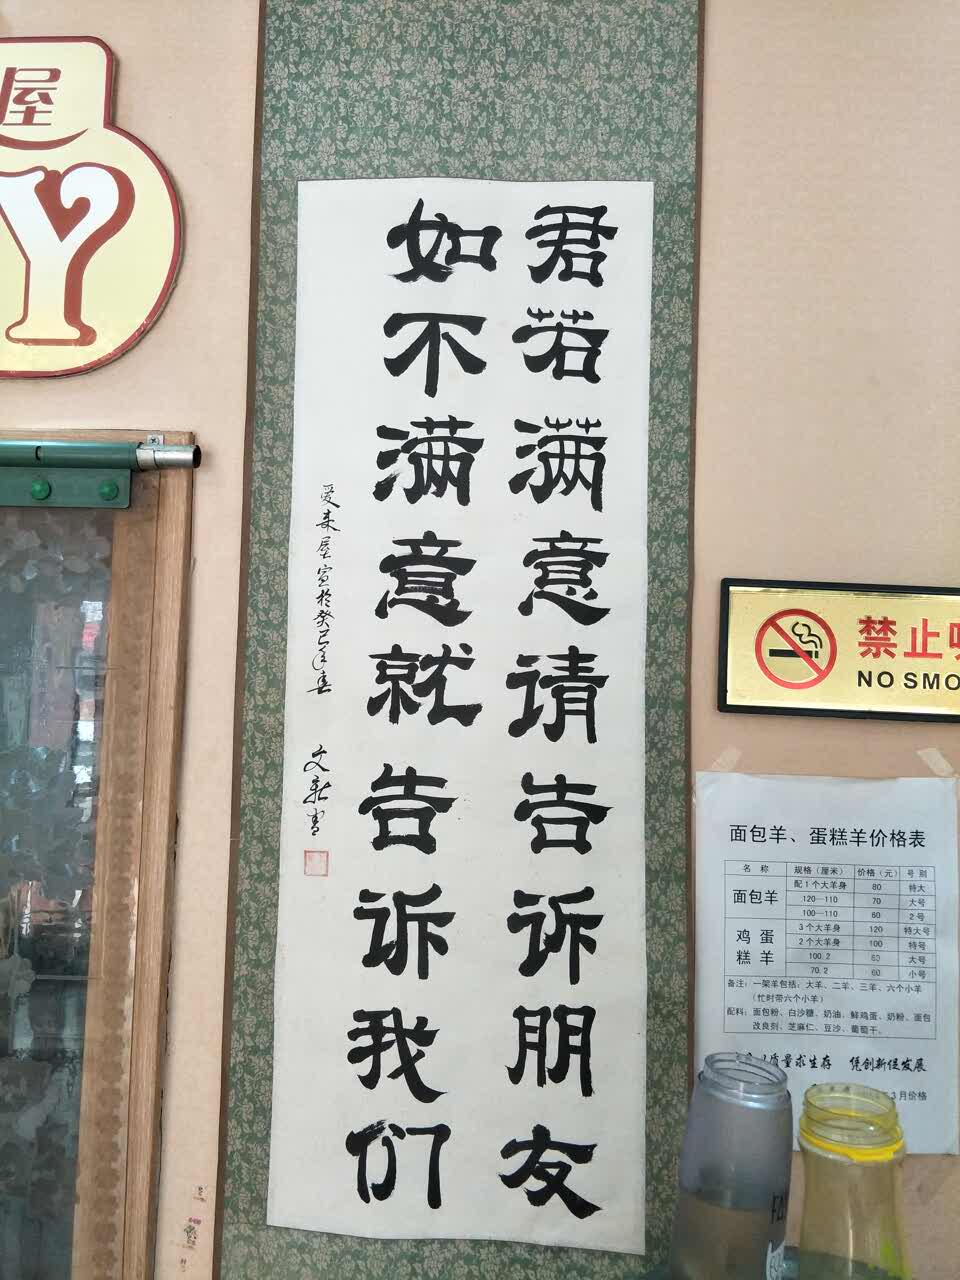 君若满意请告诉朋友
如不满意就告诉我们
爱来屋宣於癸巳年春
文新书
屋
Y
禁止
NO SMO
面包羊、蛋糕羊价格表
名 称 规格（厘米） 价格（元） 号 别
面包羊 配1个大羊身 80 特大
120—110 70 大号
100—110 60 2号
鸡蛋糕羊 3个大羊身 120 特大号
2个大羊身 100 特号
100.2 80 大号
70.2 60 小号
备注：一架羊包括：大羊、二羊、三羊、六个小羊
（忙时带六个小羊）
配料：面包粉、白沙糖、奶油、鲜鸡蛋、奶粉、面包
改良剂、芝麻仁、豆沙、葡萄干。
质量求生存 凭创新促发展
3月价格